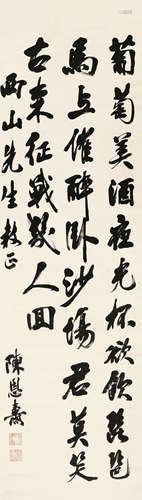 葡萄美酒夜光杯欲飲琵琶
馬上催醉卧沙場君莫笑
古來征戰幾人回
西山先生教正
陳恩燾